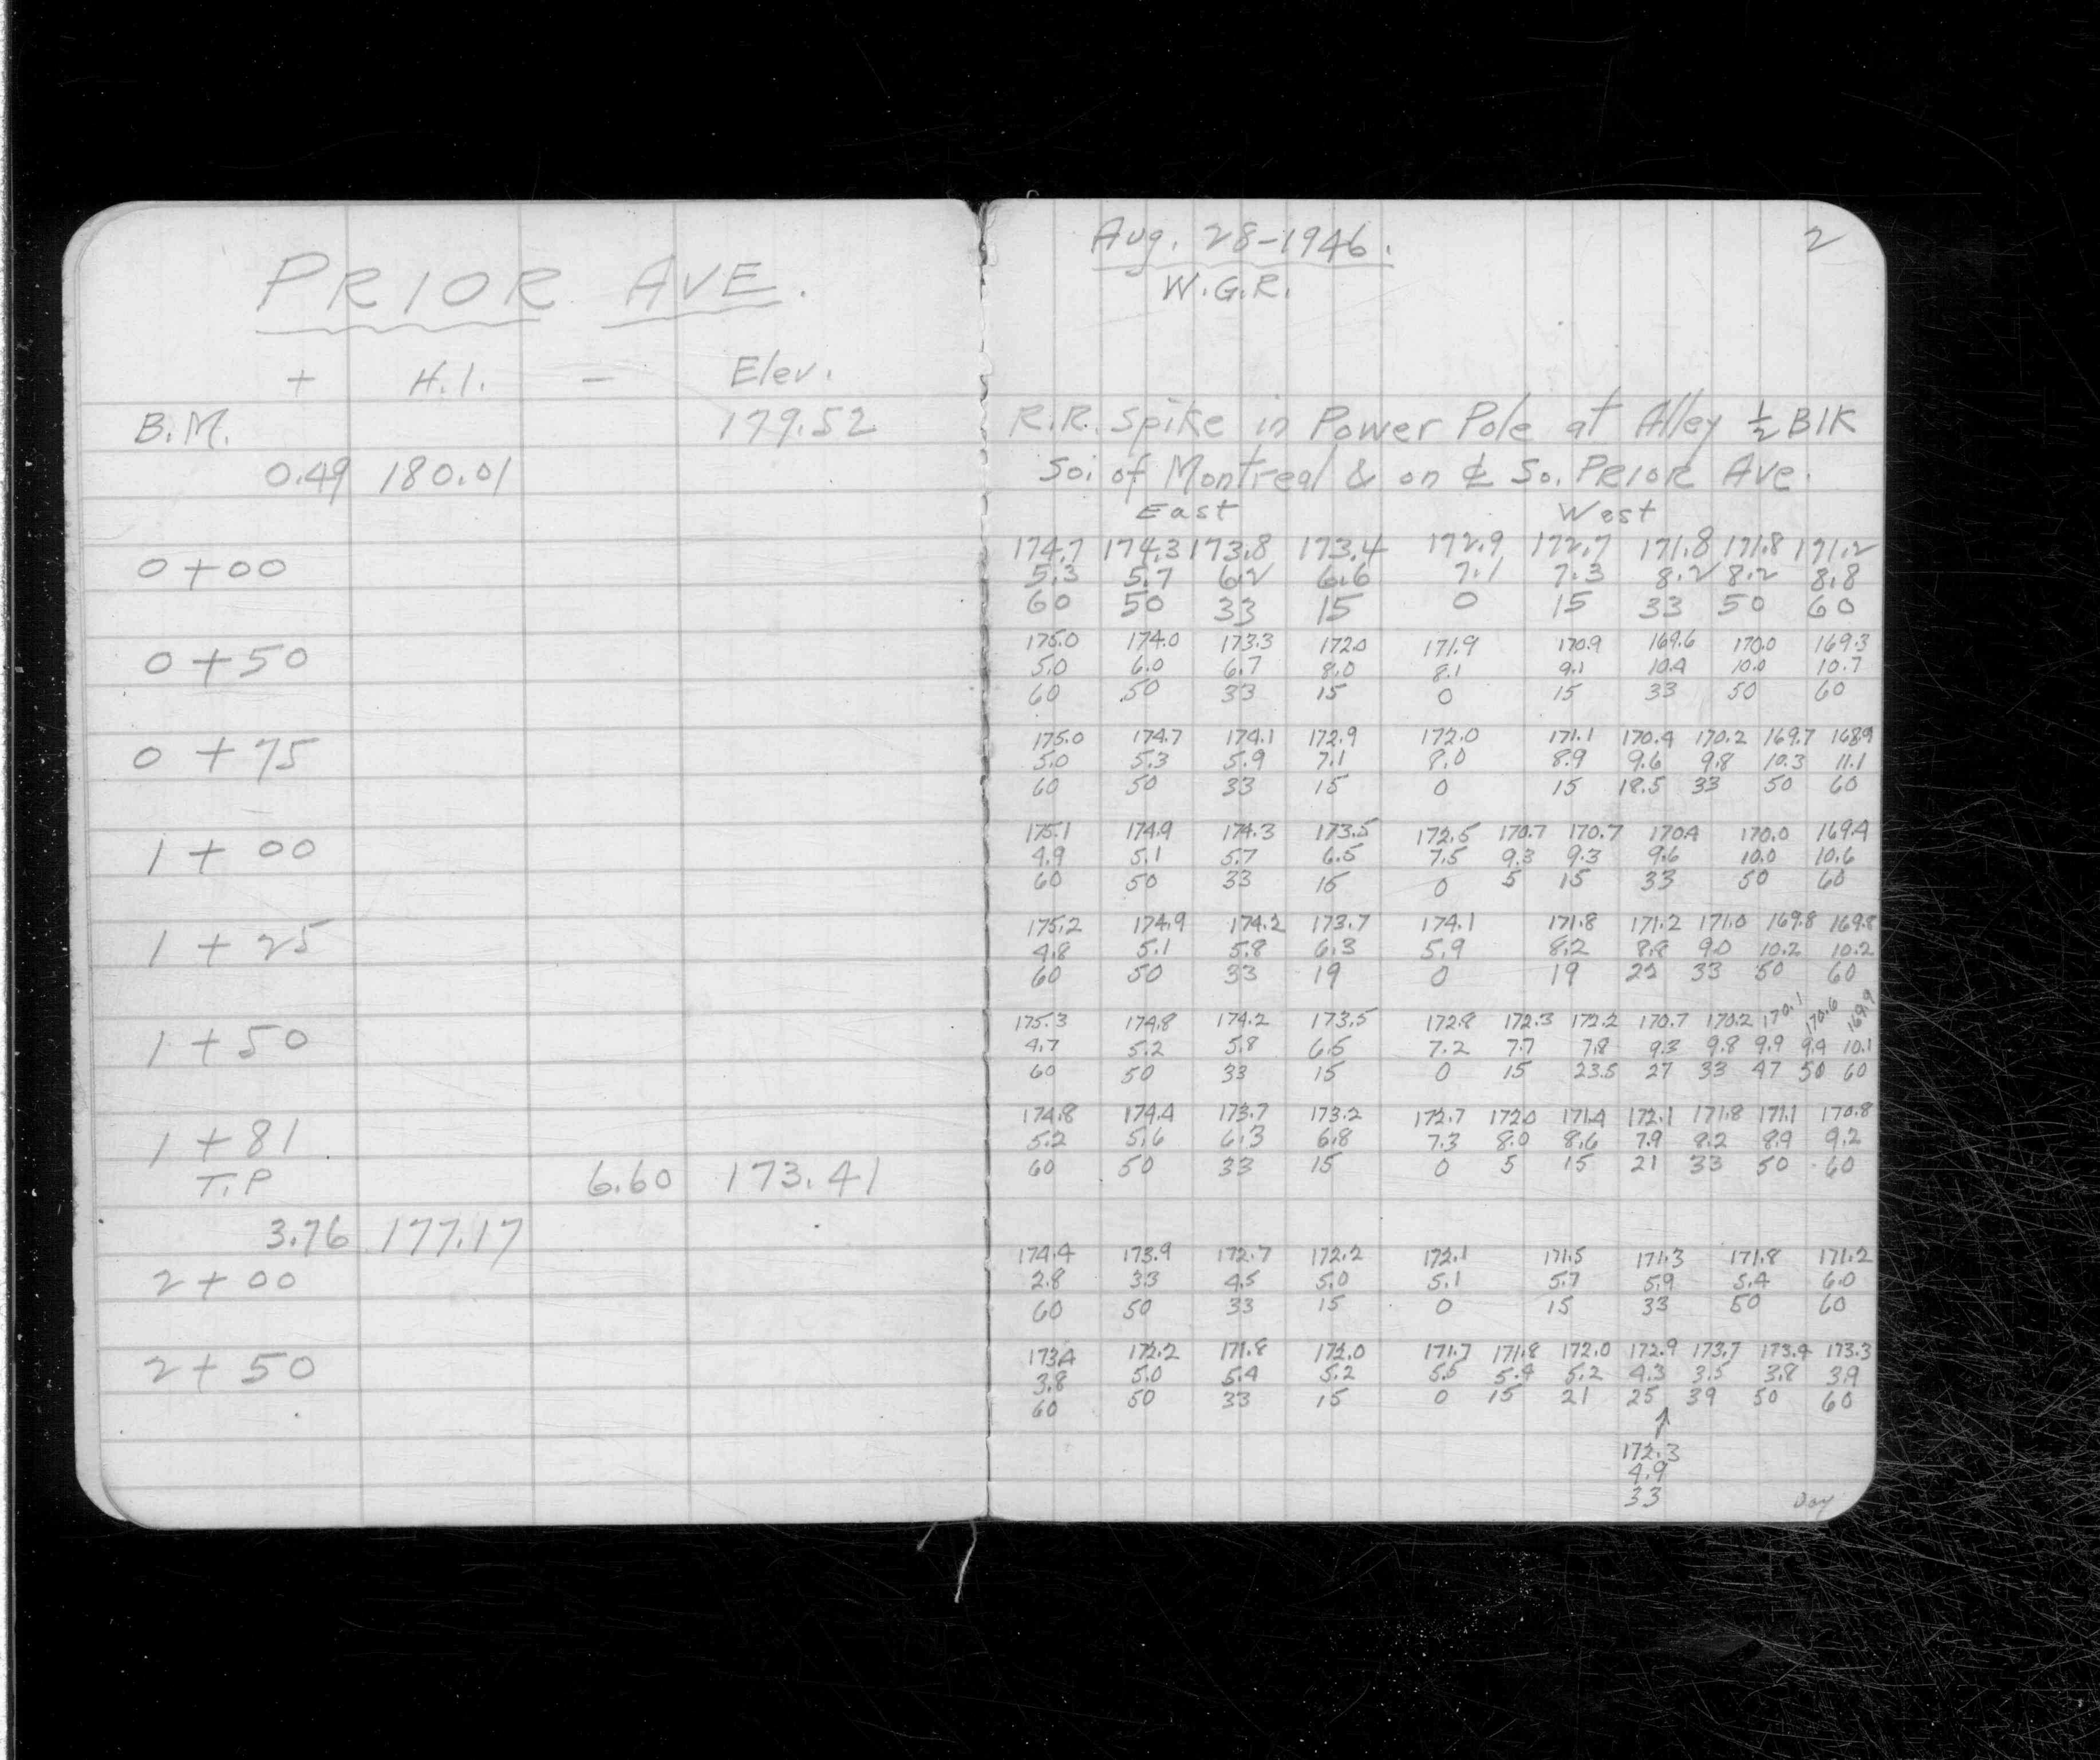 PRIOR AVE.
+ H.I. - Elev.
B.M. 179.52
0.49 180.01
0+00
0+50
0+75
1+00
1+25
1+50
1+81
T.P 6.60 173.41
3.76 177.17
2+00
2+50
Aug. 28-1946. 2
W.G.R.
R.R. Spike in Power Pole at Alley ½ Blk
So. of Montreal & on ℄ So. Prior Ave.
East West
174.7 174.3 173.8 173.4 172.9 172.7 171.8 171.8 171.2
5.3 5.7 6.2 6.6 7.1 7.3 8.2 8.2 8.8
60 50 33 15 0 15 33 50 60
175.0 174.0 173.3 172.0 171.9 170.9 169.6 170.0 169.3
5.0 6.0 6.7 8.0 8.1 9.1 10.4 10.0 10.7
60 50 33 15 0 15 33 50 60
175.0 174.7 174.1 172.9 172.0 171.1 170.4 170.2 169.7 168.9
5.0 5.3 5.9 7.1 8.0 8.9 9.6 9.8 10.3 11.1
60 50 33 15 0 15 18.5 33 50 60
175.1 174.9 174.3 173.5 172.5 170.7 170.7 170.4 170.0 169.4
4.9 5.1 5.7 6.5 7.5 9.3 9.3 9.6 10.0 10.6
60 50 33 15 0 5 15 33 50 60
175.2 174.9 174.2 173.7 174.1 171.8 171.2 171.0 169.8 169.8
4.8 5.1 5.8 6.3 5.9 8.2 8.8 9.0 10.2 10.2
60 50 33 19 0 19 33 50 60
175.3 174.8 174.2 173.5 172.8 172.3 172.2 170.7 170.2 170.1 170.6 169.9
4.7 5.2 5.8 6.5 7.2 7.7 7.8 9.3 9.8 9.9 9.4 10.1
60 50 33 15 0 15 23.5 27 33 47 50 60
174.8 174.4 173.7 173.2 172.7 172.0 171.4 172.1 171.8 171.1 170.8
5.2 5.6 6.3 6.8 7.3 8.0 8.6 7.9 8.2 8.9 9.2
60 50 33 15 0 5 15 21 33 50 60
174.4 173.9 172.7 172.2 172.1 171.5 171.3 171.8 171.2
2.8 3.3 4.5 5.0 5.1 5.7 5.9 5.4 6.0
60 50 33 15 0 15 33 50 60
173.4 172.2 171.8 172.0 171.7 171.8 172.0 172.9 173.7 173.4 173.3
3.8 5.0 5.4 5.2 5.5 5.4 5.2 4.3 3.5 3.8 3.9
60 50 33 15 0 15 21 25 39 50 60
172.3
4.9
33